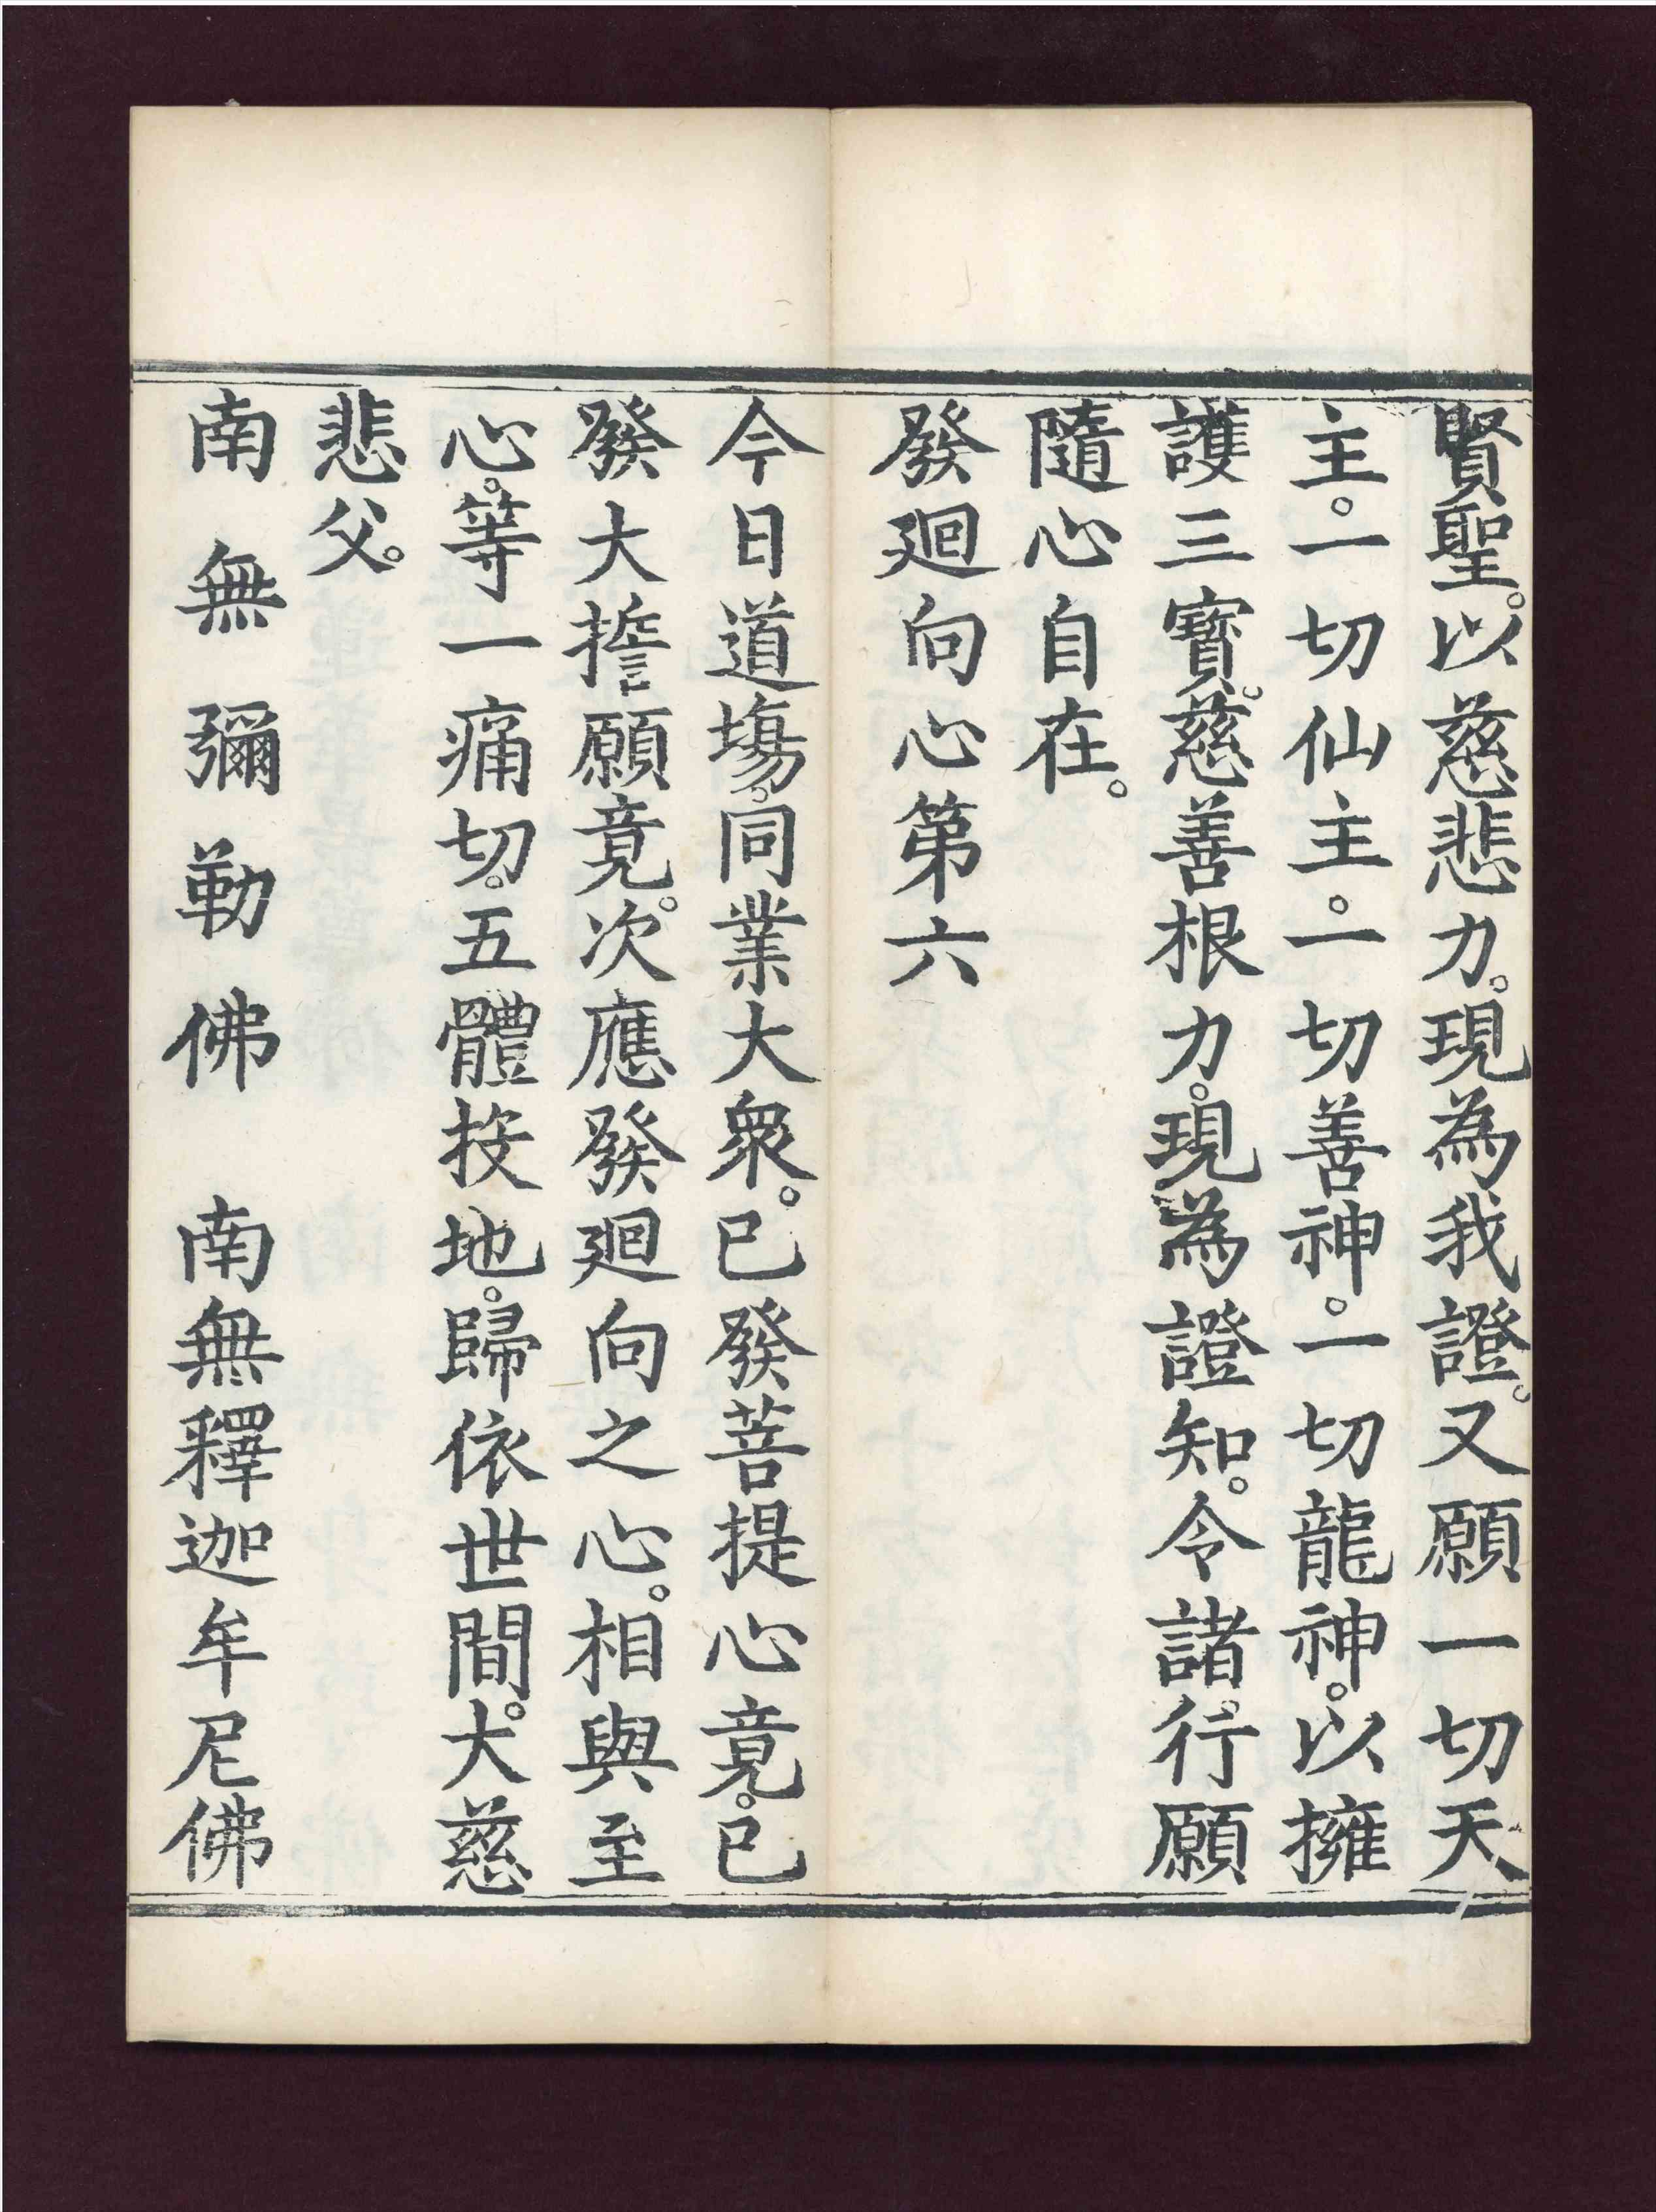 賢聖。以慈悲力。現為我證。又願一切天
主。一切仙主。一切善神。一切龍神。以擁
護三寶。慈善根力。現為證知。令諸行願
隨心自在。
發廻向心第六
今日道塲。同業大衆。已發菩提心竟。已
發大擔願竟。次應發廻向之心。相與至
心。等一痛切。五體投地。歸依世間。大慈
悲父。
南無彌勒佛　南無釋迦牟尼佛